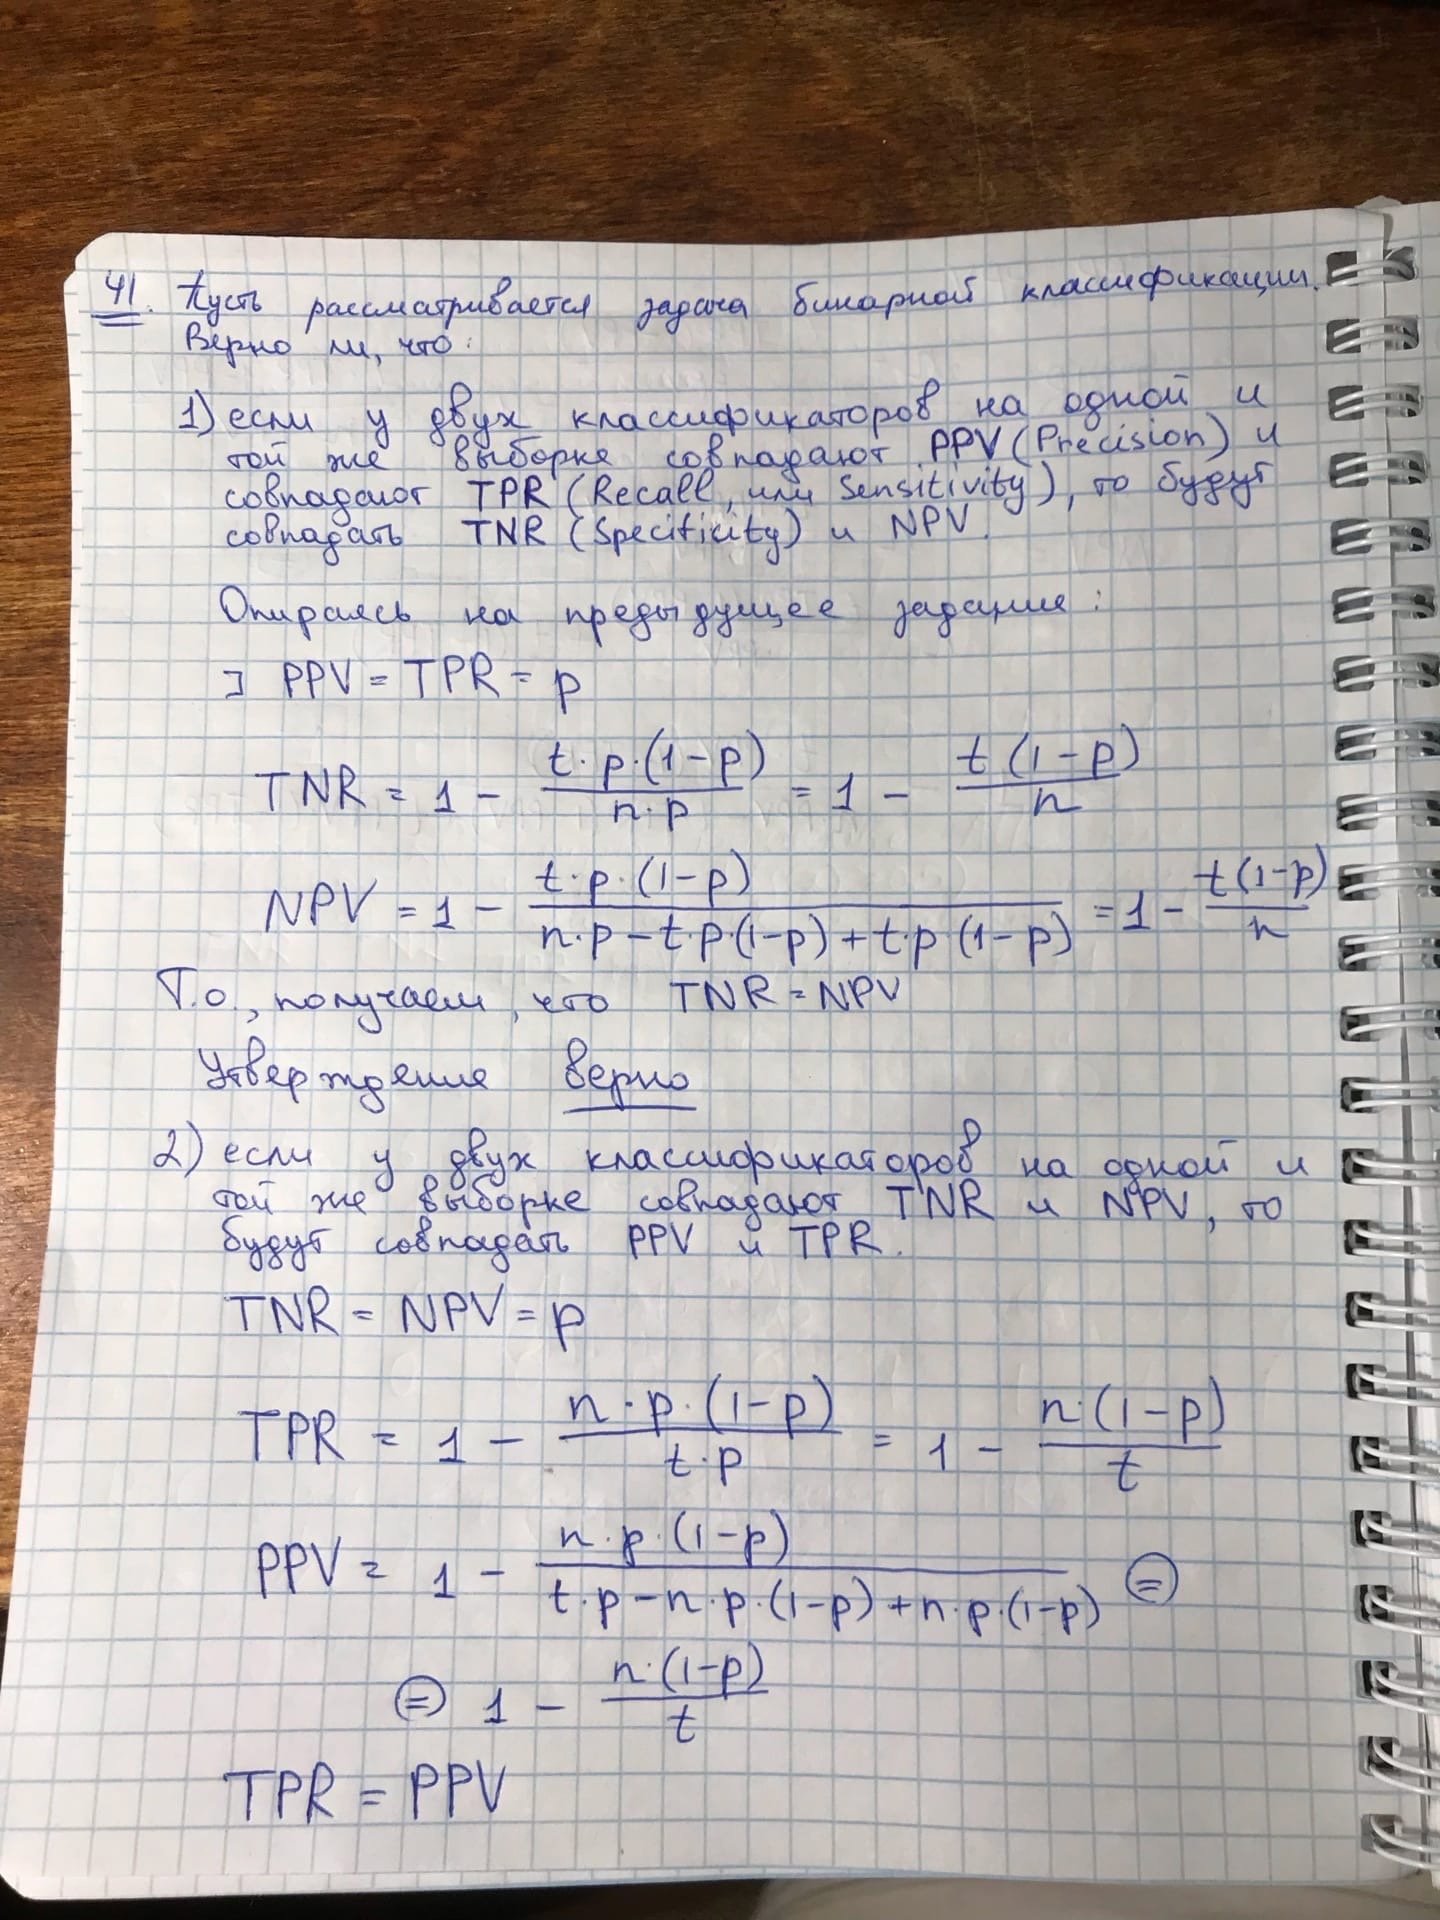 41. Пусть рассматривается задача бинарной классификации.
Верно ли, что:
1) если у двух классификаторов на одной и
той же выборке совпадают PPV (Precision) и
совпадают TPR (Recall, или Sensitivity), то будут
совпадать TNR (Specificity) и NPV.
Опираясь на предыдущее задание:
∃ PPV = TPR = p
TNR = 1 - t·p·(1-p) / n·p = 1 - t(1-p) / n
NPV = 1 - t·p·(1-p) / n·p - t·p·(1-p) + t·p·(1-p) = 1 - t(1-p) / n
Т.о., получаем, что TNR = NPV
Утверждение верно
2) если у двух классификаторов на одной и
той же выборке совпадают TNR и NPV, то
будут совпадать PPV и TPR.
TNR = NPV = p
TPR = 1 - n·p·(1-p) / t·p = 1 - n·(1-p) / t
PPV = 1 - n·p·(1-p) / t·p - n·p·(1-p) + n·p·(1-p) ⊜
⊜ 1 - n·(1-p) / t
TPR = PPV